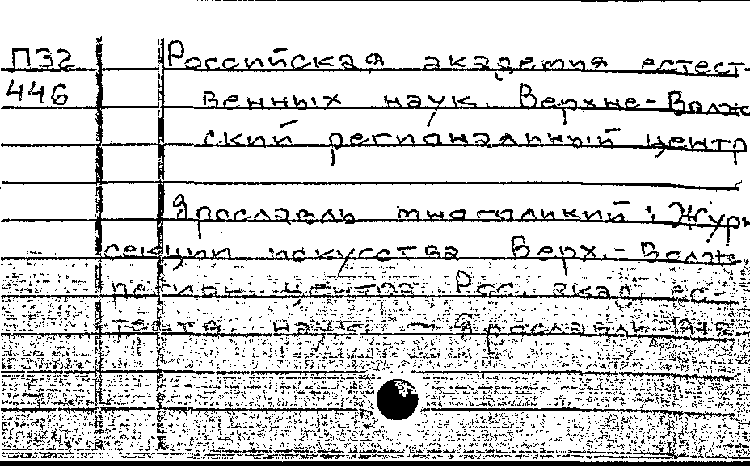 П32 Российская академия естест-
446 венных наук. Верхне-Волжс
ский региональный центр
Ярославль многоликий: Журн
секции искусства Верх.-Волж.
регион. центра Рос. акад. ес-
теств. наук. — Ярославль,